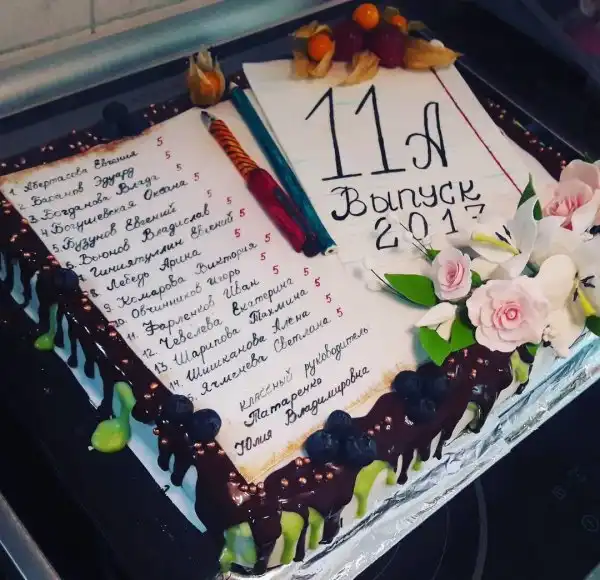 1. Абертасова Евгения 5
2. Басанов Эдуард 5
3. Богданова Влада 5
4. Богушевская Оксана 5
5. Бузунов Евгений 5
6. Вьюнов Владислав 5
7. Гиниятулин Евгений 5
8. Лебедь Арина 5
9. Комарова Виктория 5
10. Овчинников Игорь 5
11. Фарленков Иван 5
12. Чевелева Екатерина 5
13. Шарипова Тахмина 5
14. Шишканова Алена 5
15. Ячменева Светлана 5
классный руководитель
Татаренко
Юлия Владимировна
11А
Выпуск
2017